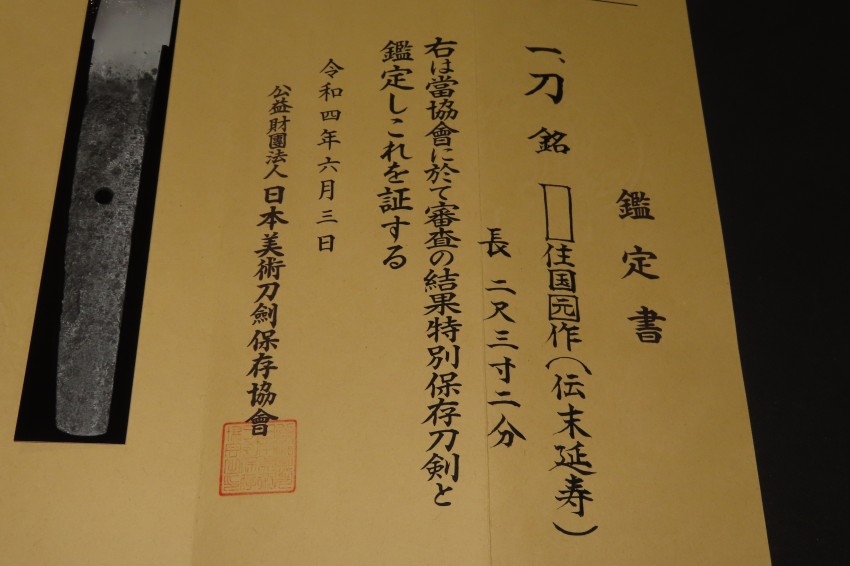 鑑定書
一、刀 銘 住国元作(伝末延寿)
長 二尺三寸二分
右は當協會に於て審査の結果特別保存刀剣と
鑑定しこれを証する
令和四年六月三日
公益財團法人 日本美術刀劍保存協會